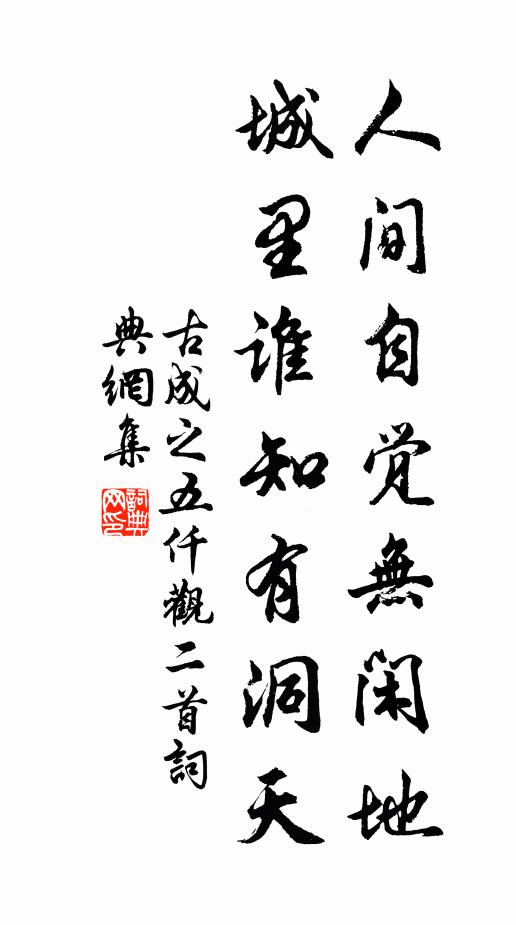 人间自觉無闲地
城里谁知有洞天
古成之五仟觀二首詞
典網集
詞典网印